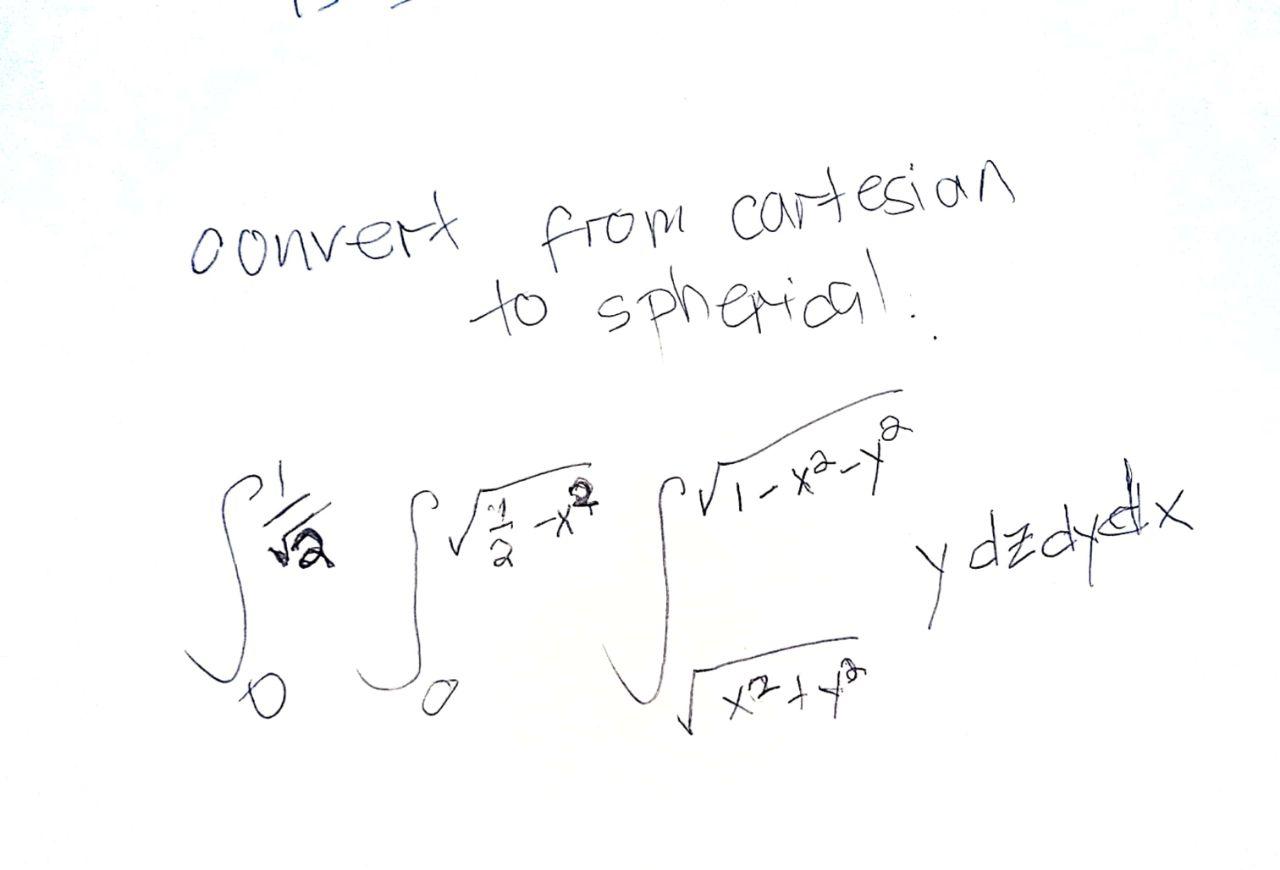 convert from cartesian
to spherical.
∫₀^{1/√2} ∫₀^{√(1/2 - x²)} ∫_{√(x²+y²)}^{√(1-x²-y²)} y dz dy dx